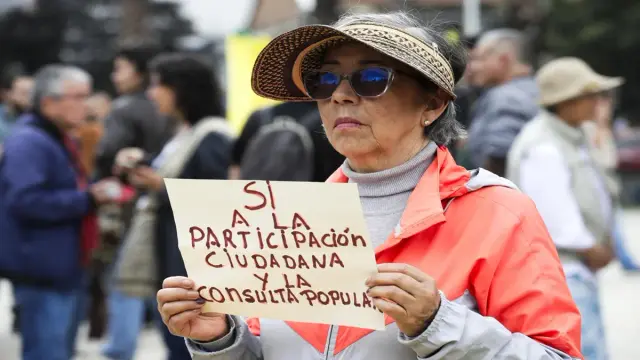 SI
A LA
PARTICIPACIÓN
CIUDADANA
Y LA
CONSULTA POPULAR